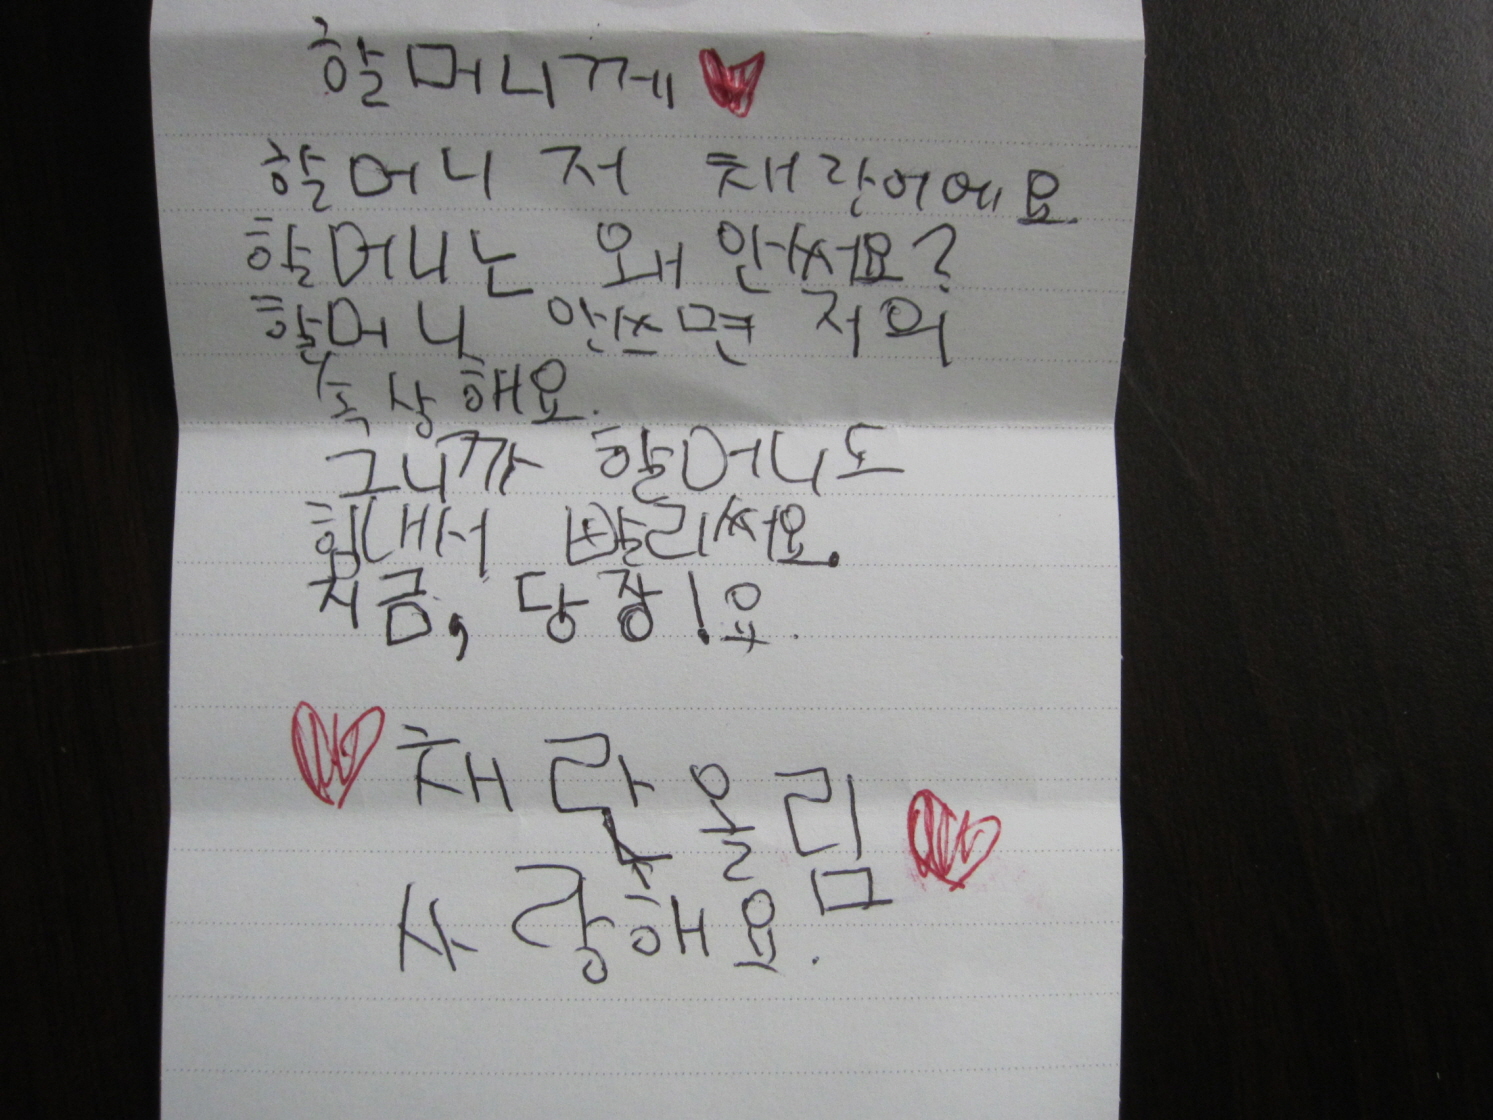 할머니께
할머니 저 채란이에요
할머니는 왜 안써요?
할머니 안쓰면 저의
속상해요.
그니까 할머니도
힘내서 빨리써요.
지금, 당장!요.
채란올림
사랑해요.